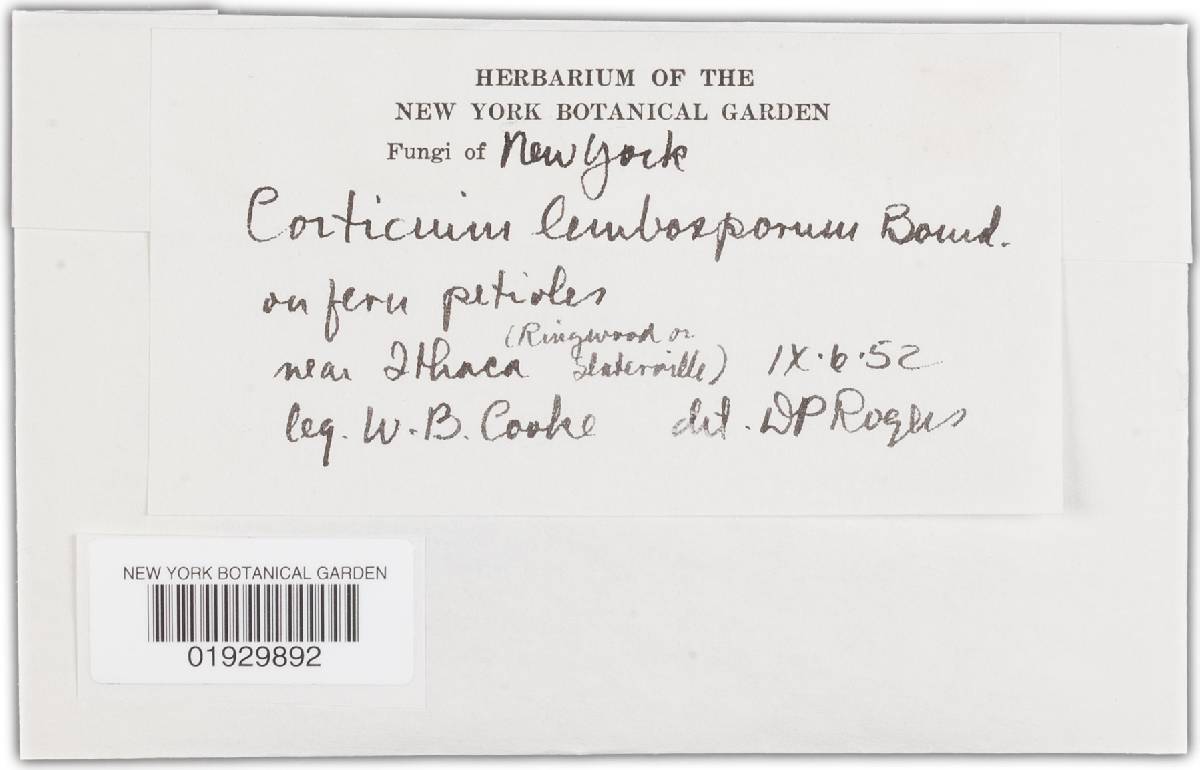 HERBARIUM OF THE
NEW YORK BOTANICAL GARDEN
Fungi of New York
Corticium lembosporum Bourd.
on fern petioles
near Ithaca (Ringwood or
Slaterville) IX.6.52
leg. W.B. Cooke det. DP Rogers
NEW YORK BOTANICAL GARDEN
01929892